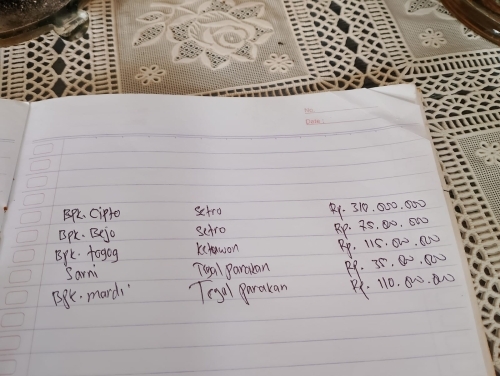 No.
Date.
Bpk. Cipto Setro Rp. 310.000.000
Bpk. Bejo Setro Rp. 75.00.000
Bpk. togog Ketawon Rp. 115.00.000
Sarni Tegal parakan Rp. 35.00.000
Bpk. mardi Tegal parakan Rp. 110.000.000